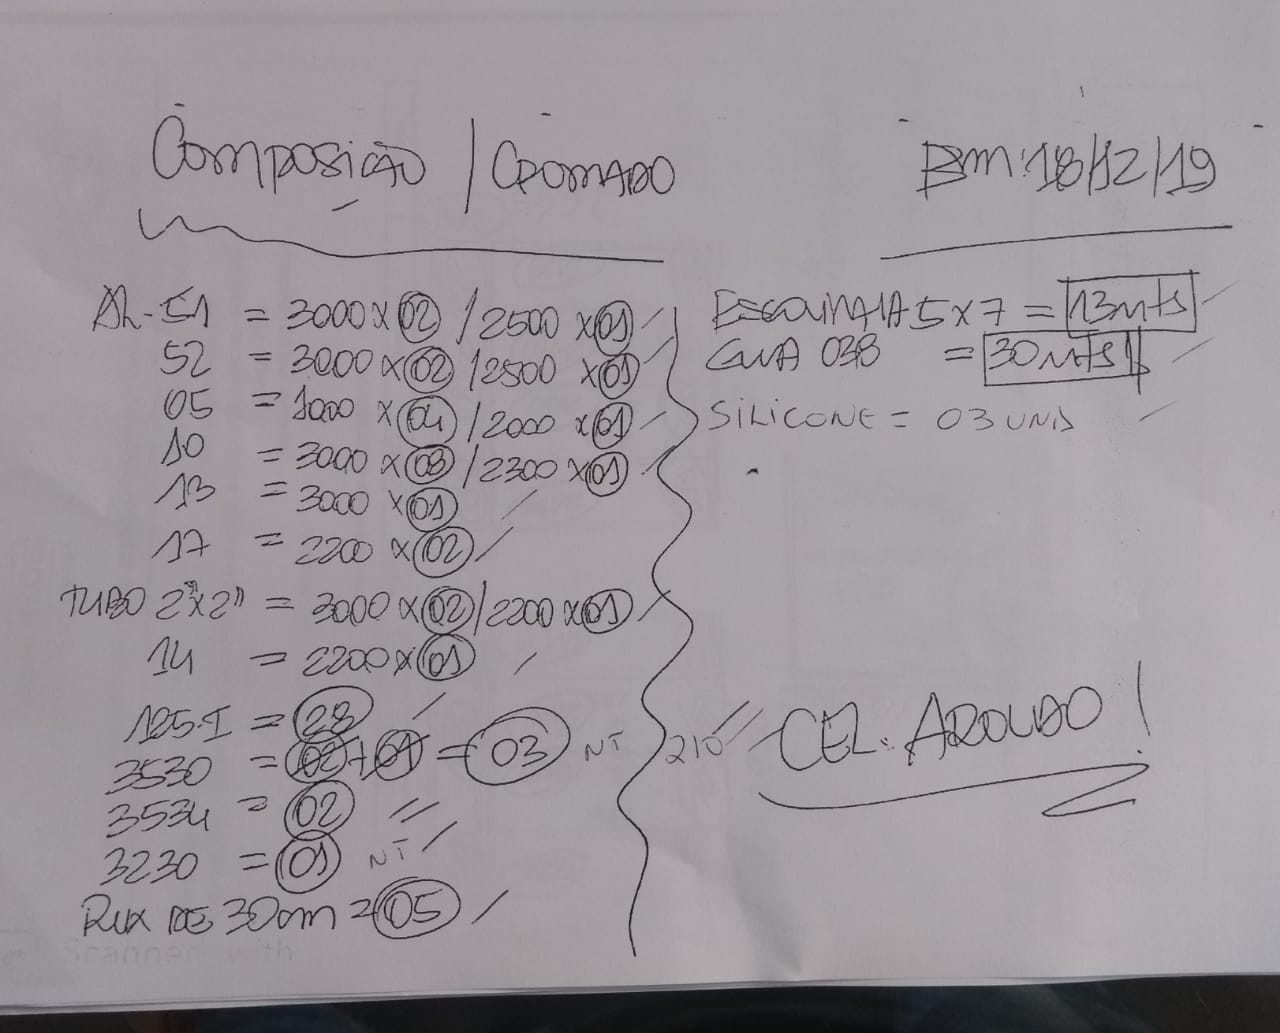 Composição / CROMADO
Bm: 18/12/19
AL-51 = 3000 x 02 / 2500 x 01
52 = 3000 x 02 / 2500 x 01
05 = 1000 x 04 / 2000 x 01
10 = 3000 x 08 / 2300 x 01
13 = 3000 x 01
17 = 2200 x 02
TUBO 2"x2" = 3000 x 02 / 2200 x 01
14 = 2200 x 01
125-I = 28
3530 = 02 + 01 = 03 NT 210
3534 = 02
3230 = 01 NT
PUX DE 30cm = 05
5x7 = 13mts
038 = 30mts
SILICONE = 03 UND
CEL. AROLDO!
Scanned with